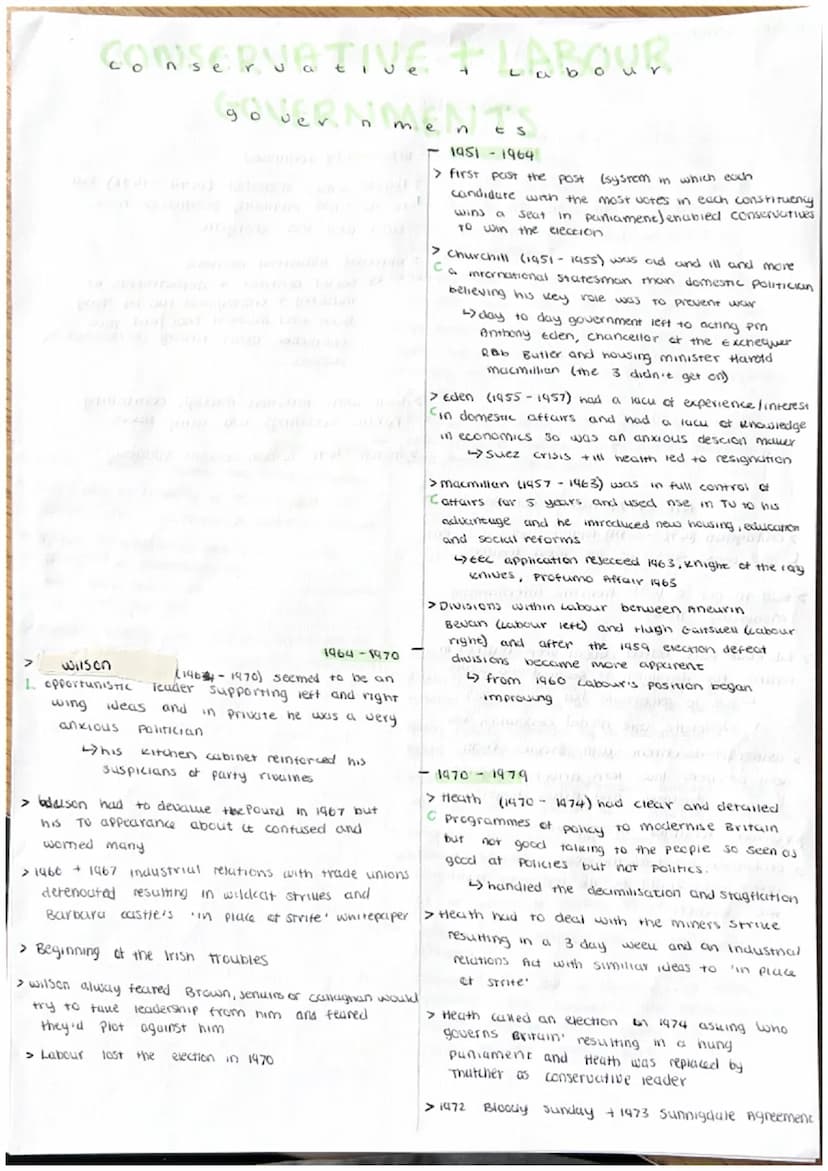 CONSERVATIVE + LABOUR
GOVERNMENTS
conservative + Labour
governments
- 1951 - 1964
> First past the post (system in which each
candidate with the most votes in each constituency
wins a seat in parliament) enabled conservatives
to win the election
> Churchill (1951 - 1955) was old and ill and more
C a international statesman than domestic politician
believing his key role was to prevent war
↳ day to day government left to acting pm
Anthony Eden, chancellor of the Exchequer
Rab Butler and housing minister Harold
macmillan (the 3 didn't get on)
> Eden (1955 - 1957) had a lack of experience/interest
C in domestic affairs and had a lack of knowledge
in economics so was an anxious descion maker
↳ Suez crisis + ill health led to resignation
> macmillan (1957 - 1963) was in full control of
C affairs for 5 years and used rise in TV to his
advantage and he introduced new housing, education
and social reforms
↳ EEC application rejected 1963, knight of the long
knives, Profumo Affair 1963
> Divisions within Labour between Aneurin
Bevan (Labour left) and Hugh Gaitskell (Labour
right) and after the 1959 election defeat
divisions became more apparent
↳ from 1960 Labour's position began
improving
1964 - 1970 -
> wilson (1964 - 1970) seemed to be an
L opportunistic leader supporting left and right
wing ideas and in private he was a very
anxious politician
↳ his kitchen cabinet reinforced his
suspicians of party rivalries
> Wilson had to devalue the pound in 1967 but
his TV appearance about it confused and
worried many
> 1966 + 1967 industrial relations with trade unions
deterioated resulting in wildcat strikes and
Barbara castle's 'in place of strife' whitepaper
> Beginning of the Irish troubles
> wilson always feared Brown, Jenkins or callaghan would
try to take leadership from him and feared
they'd plot against him
> Labour lost the election in 1970
- 1970 - 1979
> Heath (1970 - 1974) had clear and detailed
C Programmes of policy to modernise Britain
but not good talking to the people so seen as
good at policies but not politics.
↳ handled the decimilisation and stagflation
> Heath had to deal with the miners strike
resulting in a 3 day week and an Industrial
relations Act with similiar ideas to 'in place
of strife'
> Heath called an election in 1974 asking 'who
governs Britain' resulting in a hung
parliament and Heath was replaced by
Thatcher as conservative leader
> 1972 Bloody Sunday + 1973 Sunnigdale Agreement